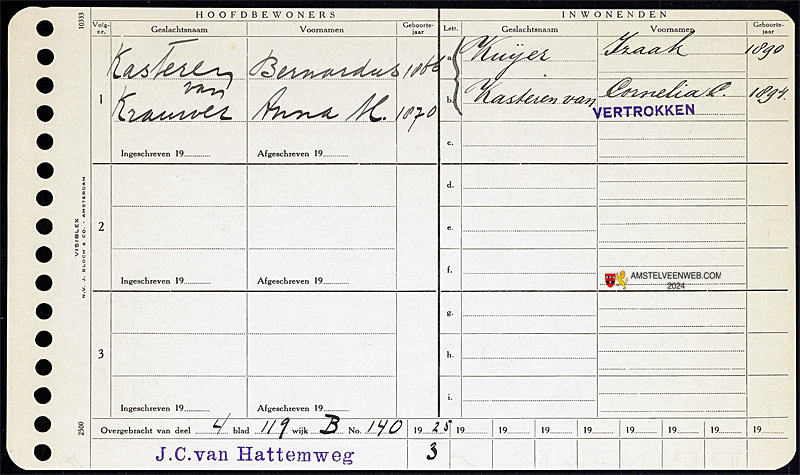 HOOFDBEWONERS INWONENDEN
10333
Volg-nr. Geslachtsnaam Voornamen Geboorte-jaar Lett. Geslachtsnaam Voornamen Geboorte-jaar
Kasteren van Bernardus 1866 a. Kuijer Izaak 1890
1 Krauwer Anna M. 1870 b. Kasteren van Cornelia C. 1894.
VERTROKKEN
c.
Ingeschreven 19 Afgeschreven 19
d.
2 e.
f.
Ingeschreven 19 Afgeschreven 19
AMSTELVEENWEB.COM
2024
g.
3 h.
i.
Ingeschreven 19 Afgeschreven 19
VISIBLEX
N.V. J. BLOCH & CO. - AMSTERDAM
2500
Overgebracht van deel 4 blad 119 wijk B No. 140 19 25 19 19 19 19 19 19 19 19
J.C.van Hattemweg 3